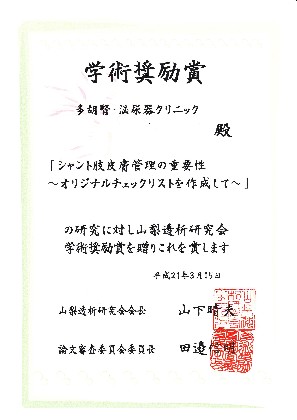 学術奨励賞
多胡腎・泌尿器クリニック
殿
「シャント肢皮膚管理の重要性
～オリジナルチェックリストを作成して～」
の研究に対し山梨透析研究会
学術奨励賞を贈りこれを賞します
平成21年3月15日
山梨透析研究会会長 山下晴夫
論文審査委員会委員長 田邉